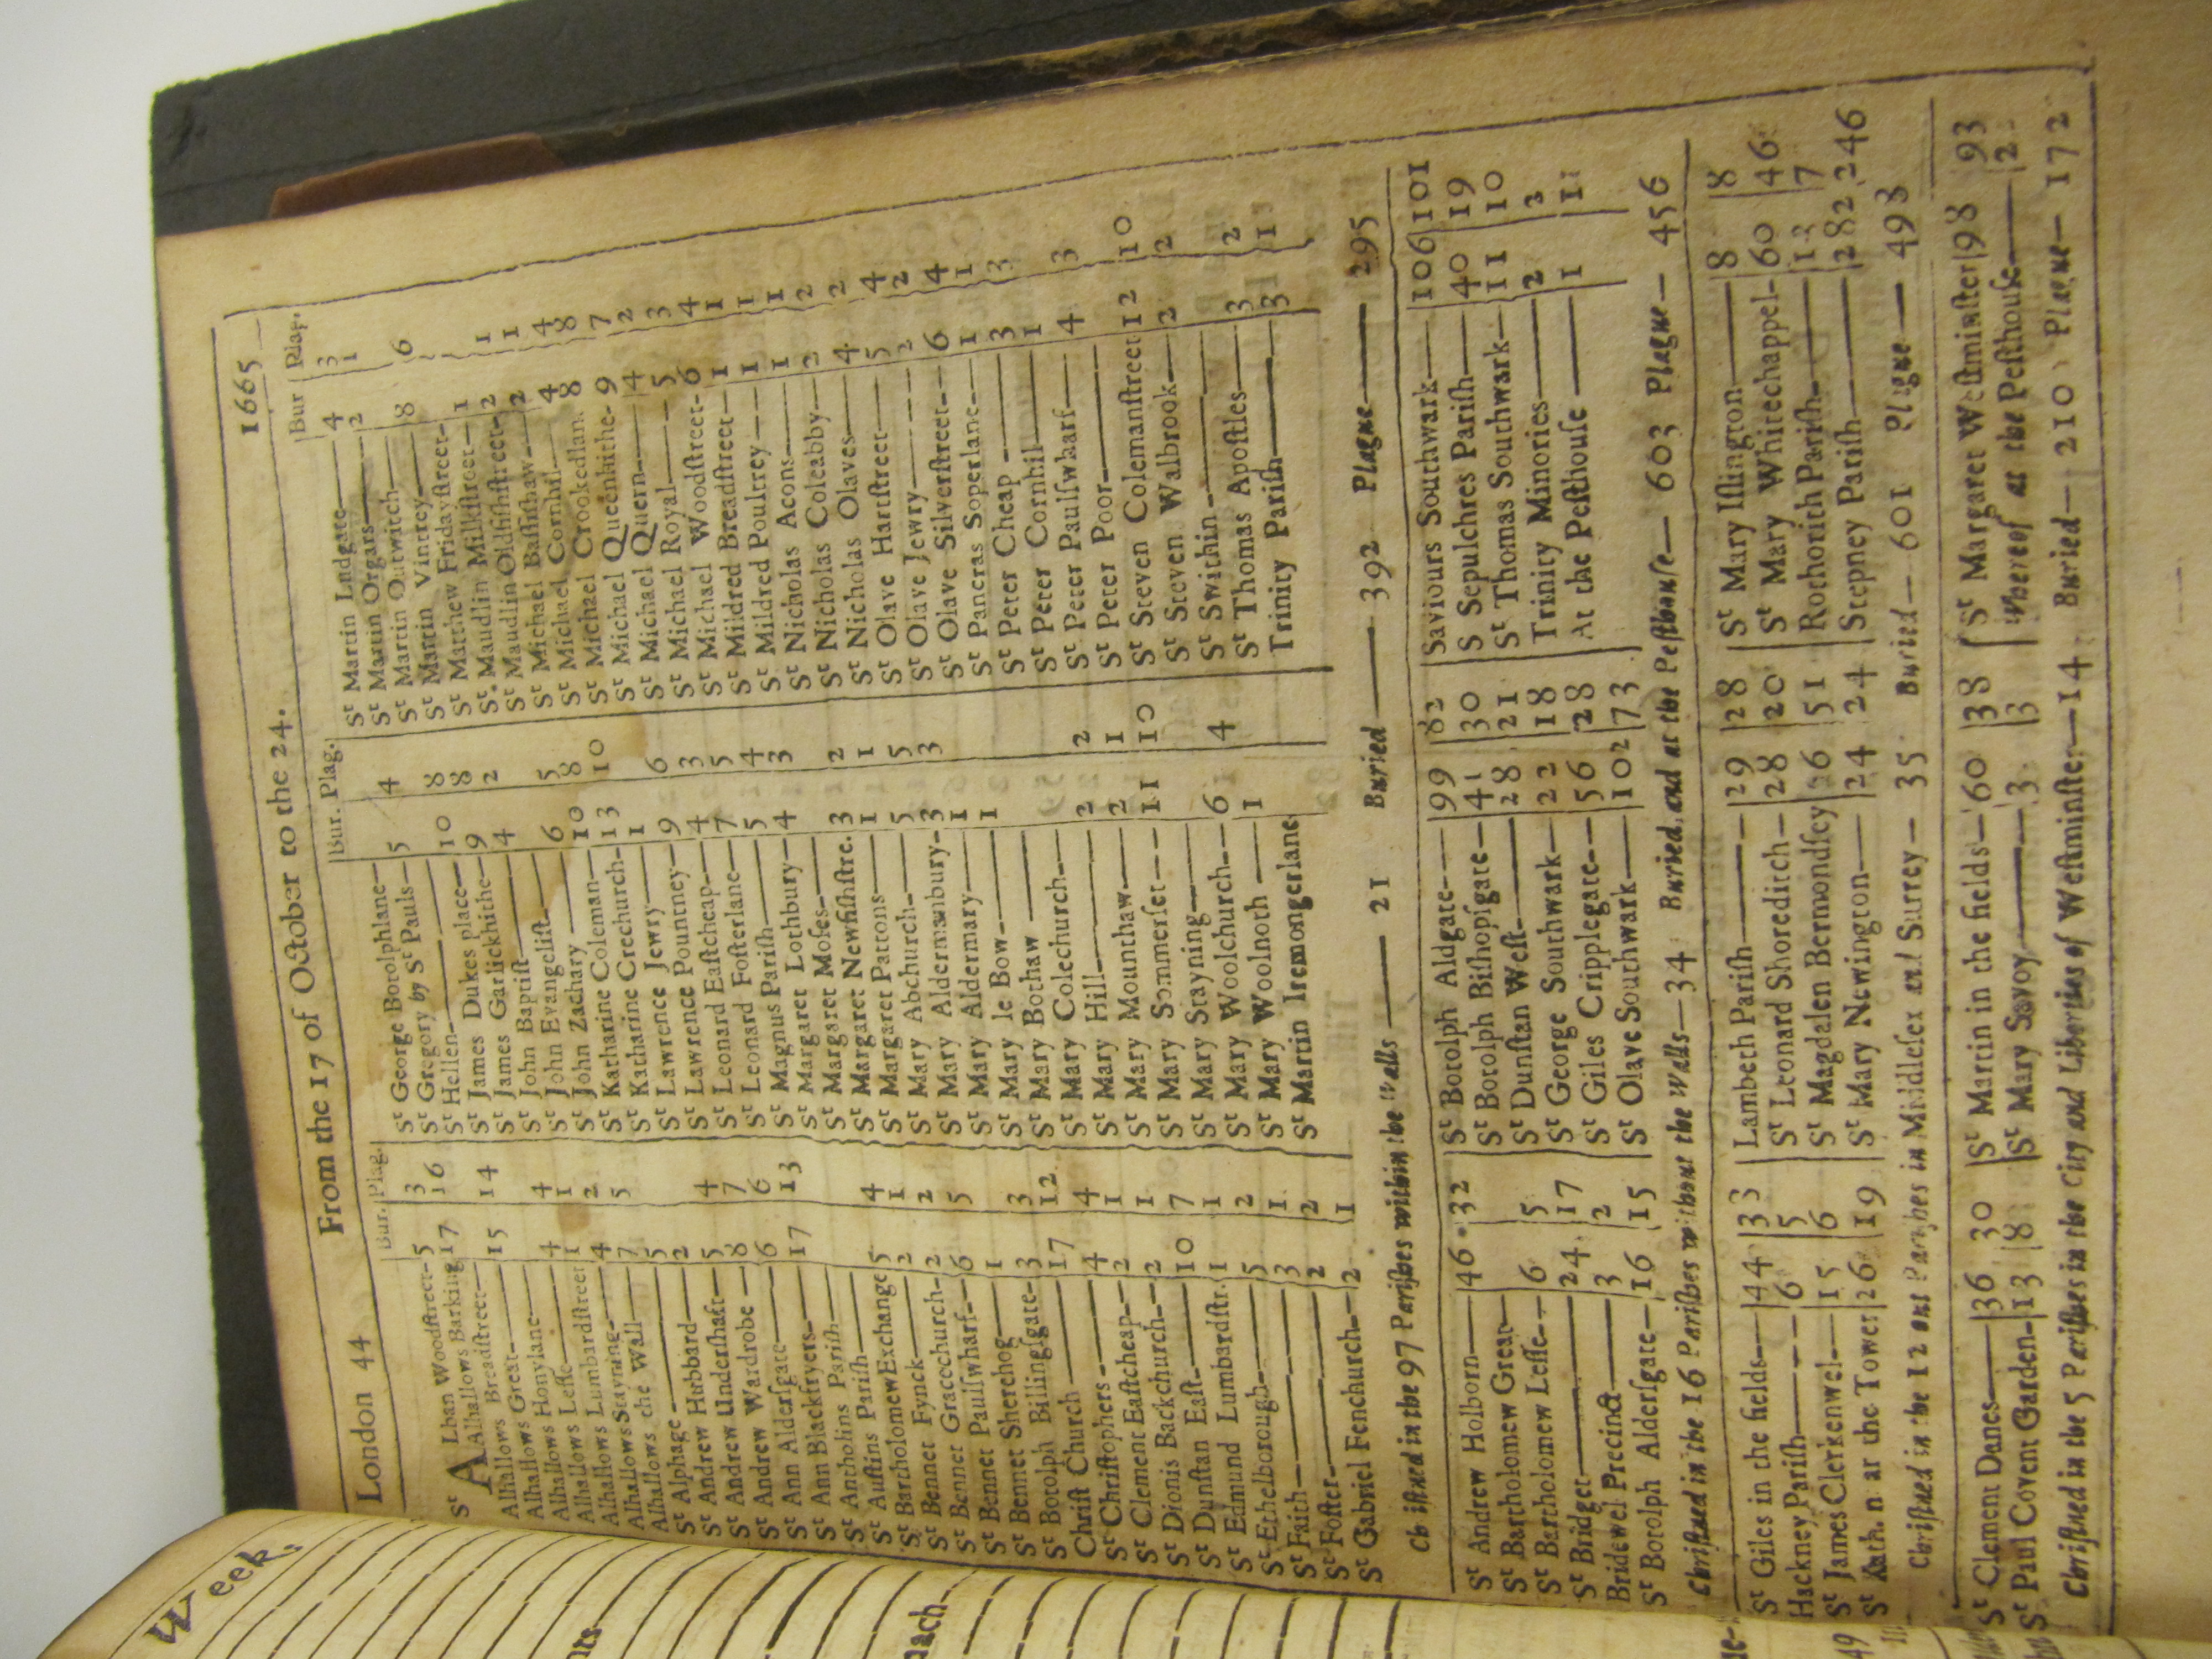 London 44 From the 17 of October to the 24. 1665
Bur. Plag.
St ALban Woodstreet 5 3
Alhallows Barking 17 16
Alhallows Breadstreet
Alhallows Great 15 14
Alhallows Honylane
Alhallows Lesse 4 4
Alhallows Lumbardstreet 1 1
Alhallows Stayning 4 2
Alhallows the Wall 7 5
St Alphage 5
St Andrew Hubbard 2
St Andrew Undershaft 5 4
St Andrew Wardrobe 8 7
St Ann Aldersgate 6 6
St Ann Blackfryers 17 13
St Antholins Parish
St Austins Parish
St Bartholomew Exchange 5 4
St Bennet Fynck 2 1
St Bennet Gracechurch 2 2
St Bennet Paulswharf 6 5
St Bennet Sherehog 1
St Botolph Billingsgate 3 3
Christ Church 17 12
St Christophers 4 4
St Clement Eastcheap 2 1
St Dionis Backchurch 2 1
St Dunstan East 10 7
St Edmund Lumbardstr. 1 1
St Ethelborough 5 2
St Faith 3 1
St Foster 2 2
St Gabriel Fenchurch 2 1
Bur. Plag.
St George Botolphlane
St Gregory by St Pauls 5 4
St Hellen 10 8
St James Dukes place 9 8
St James Garlickhithe 4 2
St John Baptist
St John Evangelist
St John Zachary 6 5
St Katharine Coleman 10 8
St Katharine Crechurch 13 10
St Lawrence Jewry 1
St Lawrence Pountney 9 6
St Leonard Eastcheap 4 3
St Leonard Fosterlane 7 5
St Magnus Parish 5 4
St Margaret Lothbury 4 3
St Margaret Moses
St Margaret Newfishstre. 3 2
St Margaret Pattons 1 1
St Mary Abchurch 5 5
St Mary Aldermanbury 3 3
St Mary Aldermary 1
St Mary le Bow 1
St Mary Bothaw
St Mary Colechurch
St Mary Hill 2 2
St Mary Mounthaw 2 1
St Mary Sommerset 11 10
St Mary Stayning
St Mary Woolchurch 6 4
St Mary Woolnoth 1
St Martin Iremongerlane
Bur Plag.
St Martin Ludgate 4 3
St Martin Orgars 2 1
St Martin Outwitch
St Martin Vintrey 8 6
St Matthew Fridaystreet
St. Maudlin Milkstreet 1
St Maudlin Oldfishstreet 2 1
St Michael Bassishaw 2 1
St Michael Cornhil 4 4
St Michael Crookedlan. 8 8
St Michael Queenhithe 9 7
St Michael Quern 4 2
St Michael Royal 5 3
St Michael Woodstreet 6 4
St Mildred Breadstreet 1 1
St Mildred Poultrey 1 1
St Nicholas Acons 1 1
St Nicholas Coleabby 2 2
St Nicholas Olaves 4 2
St Olave Hartstreet 5 4
St Olave Jewry 2 2
St Olave Silverstreet 6 4
St Pancras Soperlane 1 1
St Peter Cheap 3 3
St Peter Cornhil 1
St Peter Paulswharf 4 3
St Peter Poor
St Steven Colemanstreet 12 10
St Steven Walbrook 2 2
St Swithin
St Thomas Apostles 3 2
Trinity Parish 3 1
Christned in the 97 Parishes within the Walls 21 Buried 392 Plague 295
St Andrew Holborn 46 32
St Bartholomew Great
St Bartholomew Lesse 6 5
St Bridget 24 17
Bridewel Precinct 3 2
St Botolph Aldersgate 16 15
St Botolph Aldgate 99 82
St Botolph Bishopsgate 41 30
St Dunstan West 28 21
St George Southwark 22 18
St Giles Cripplegate 56 28
St Olave Southwark 102 73
Saviours Southwark 106 101
S Sepulchres Parish 40 19
St Thomas Southwark 11 10
Trinity Minories 2 2
At the Pesthouse 1 1
Christned in the 16 Parishes without the Walls 34 Buried, and at the Pesthouse 603 Plague 456
St Giles in the fields 44 33
Hackney Parish 6 5
St James Clerkenwel 15 6
St Kath. near the Tower 26 19
Lambeth Parish 29 28
St Leonard Shoreditch 28 20
St Magdalen Bermondsey 76 51
St Mary Newington 24 24
St Mary Islington 8 8
St Mary Whitechappel 60 46
Rothorith Parish 13 7
Stepney Parish 282 246
Christned in the 12 out Parishes in Middlesex and Surrey 35 Buried 601 Plague 493
St Clement Danes 36 30
St Paul Covent Garden 13 8
St Martin in the fields 60 38
St Mary Savoy 3 3
St Margaret Westminster 98 93
Whereof at the Pesthouse 2
Christned in the 5 Parishes in the City and Liberties of Westminster 14 Buried 210 Plague 172
Week.